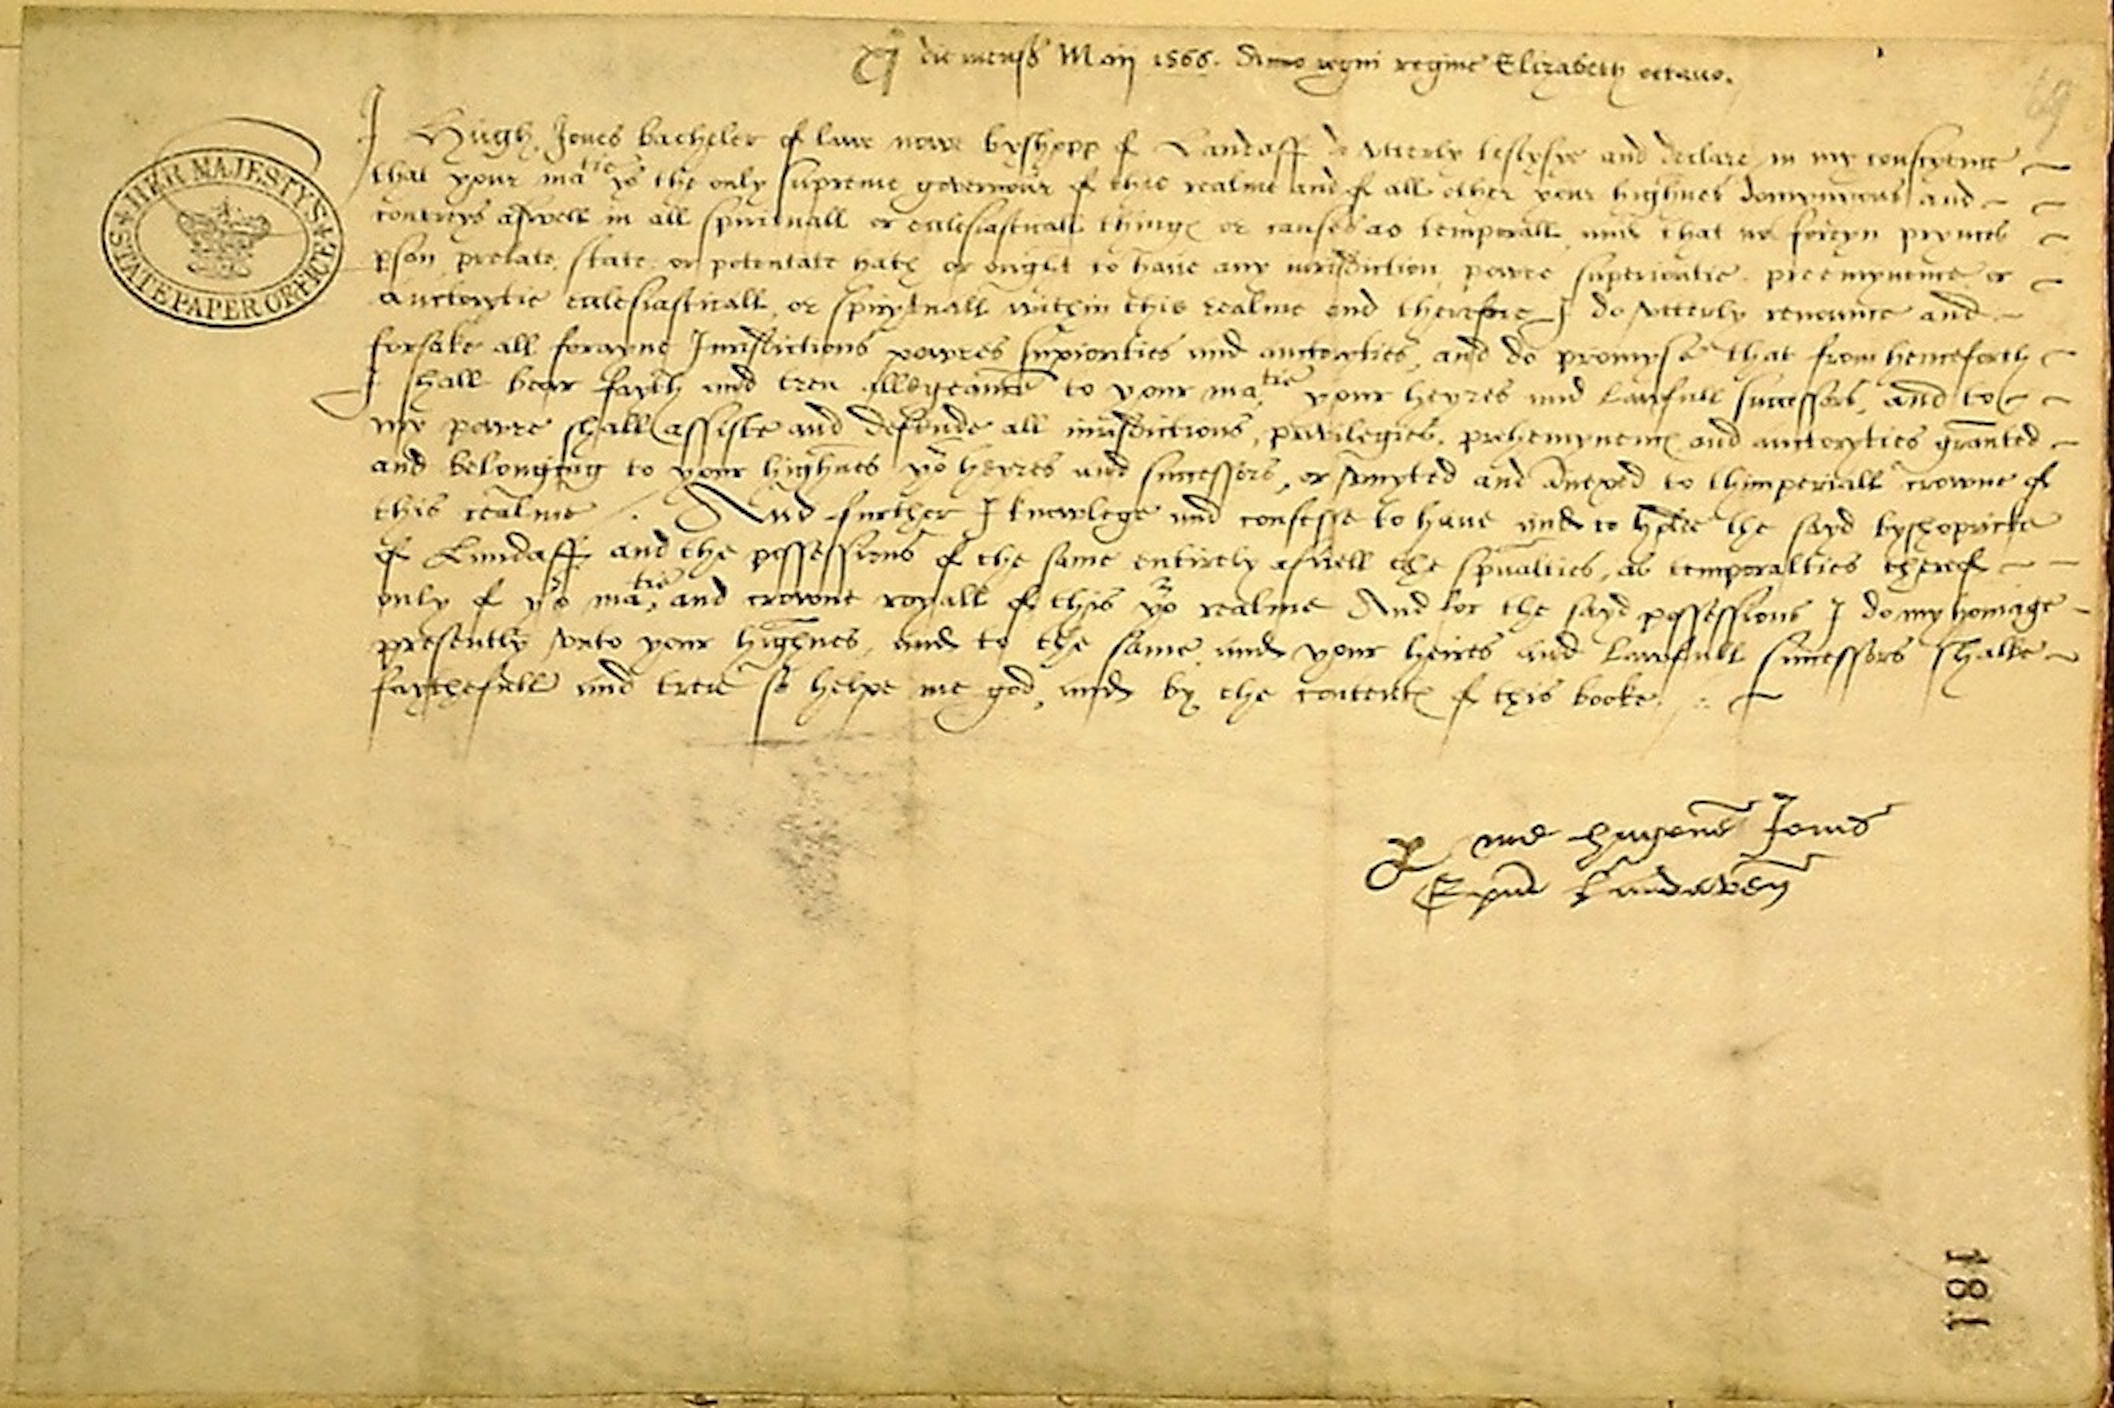 die mensis Maij 1566. Anno regni regine Elizabeth octavo.
I Hugh Jones bacheler of law nowe byshopp of Landaff do utterly testyfye and declare in my conscyence
that your ma.tie ys the only supreme governour of this realme and of all other your highnes domynyons and
contreys aswell in all spirituall or ecclesiasticall things or causes as temporall and that no foreyn prynce
pson prelate state or potentate hath or ought to have any iurisdiction powre superioritie preemynence or
auctorytie ecclesiasticall or spirytuall within this realme and therefore I do utterly renounce and
forsake all forayne Jurisdictions powres supiorities and auctoryties, and do promyse that from henceforth
I shall bear fayth and trew allegeance to your ma.tie your heyres and lawfull successors, and to
my powre shall assiste and defende all iurisdictions, privilegies, prehemynences and auctoryties granted
and belonging to your highnes yor heyres and successors, or unyted and anexed to thimperiall crowne of
this realme. And further I knowlege and confesse to have and to holde the sayd byshopricke
of Landaff and the possessions of the same entirely aswell the spualties, as temporalties therof
only of yor ma.tie, and crowne royall of this yor realme And for the sayd possessions I do my homage
presently unto your highnes, and to the same and your heires and lawfull successors shalbe
faythefull and trew so helpe me god, and by the contents of this booke.
me hugone Jones
Epum Landaven
HER MAJESTY'S
STATE PAPER OFFICE
69
181